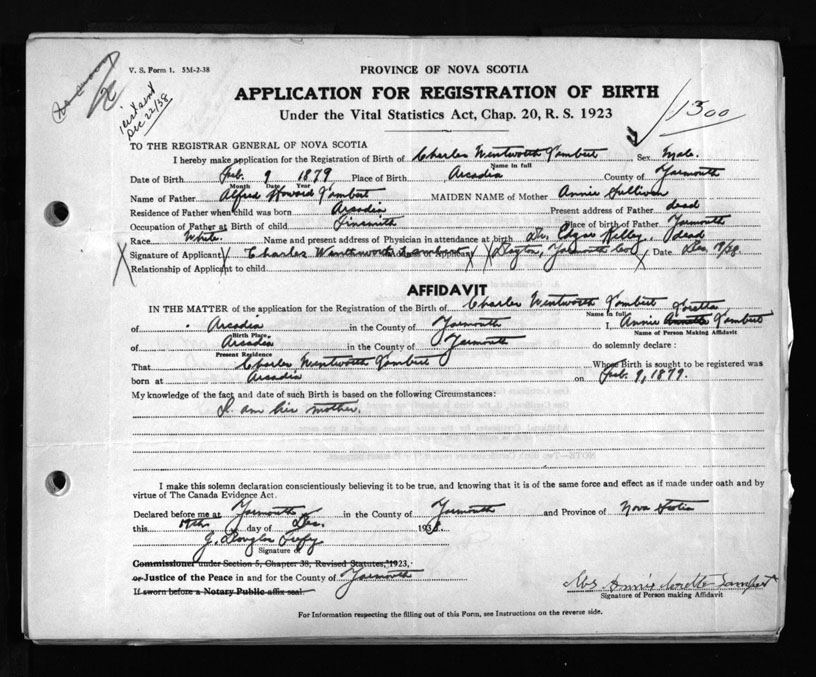 V. S. Form 1. 5M-2-38
PROVINCE OF NOVA SCOTIA
APPLICATION FOR REGISTRATION OF BIRTH
Under the Vital Statistics Act, Chap. 20, R. S. 1923
1300
Dec 22/38
TO THE REGISTRAR GENERAL OF NOVA SCOTIA
I hereby make application for the Registration of Birth of Charles Wentworth Lambert Sex Male.
Name in full
Date of Birth Feb. 9 1879 Place of Birth Arcadia County of Yarmouth
Month Date Year
Name of Father Alfred Howard Lambert MAIDEN NAME of Mother Annie Sullivan
Residence of Father when child was born Arcadia Present address of Father dead
Occupation of Father at Birth of child Tinsmith Place of birth of Father Yarmouth
Race White. Name and present address of Physician in attendance at birth Dr. Edgar Kelley, dead
Signature of Applicant Charles Wentworth Lambert Applicant Dayton, Yarmouth Co Date Dec. /38
Relationship of Applicant to child
AFFIDAVIT
IN THE MATTER of the application for the Registration of the Birth of Charles Wentworth Lambert Loretta
Name in full
of Arcadia in the County of Yarmouth I, Annie Lambert
Birth Place. Name of Person Making Affidavit
of Arcadia in the County of Yarmouth do solemnly declare :
Present Residence
That Charles Wentworth Lambert Whose Birth is sought to be registered was
born at Arcadia on Feb. 9, 1879.
My knowledge of the fact and date of such Birth is based on the following Circumstances:
I am his mother.
I make this solemn declaration conscientiously believing it to be true, and knowing that it is of the same force and effect as if made under oath and by
virtue of The Canada Evidence Act.
Declared before me at Yarmouth in the County of Yarmouth and Province of Nova Scotia
this 19th day of Dec. 1938.
J. Douglas
Signature of
Commissioner under Section 5, Chapter 38, Revised Statutes, 1923,
or Justice of the Peace in and for the County of Yarmouth
If sworn before a Notary Public affix seal.
Mrs Annie Loretta Lambert
Signature of Person making Affidavit
For Information respecting the filling out of this Form, see Instructions on the reverse side.